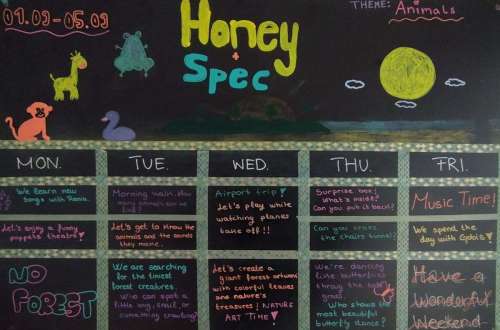 01.03-05.03
Honey
+
Spec
THEME:
Animals
MON.
TUE.
WED.
THU.
FRI.
We learn new
songs with Rania.
Morning walk. How
many animals can we
Airport trip!
Let's play while
watching planes
take off!!
Surprise box!
What's inside?
Can you put it back?
Music Time!
Let's enjoy a funny
puppets' theatre!
Let's get to know the
animals and the sounds
they make.
Can you cross
the chairs tunnel?
We spend the
day with
NO
FOREST
We are searching
for the tiniest
forest creatures.
Who can spot a
little bug, snail, or
something crawling?
Let's create a
giant forest artwork
with colorful leaves
and nature's
treasures! NATURE
ART TIME!
We're dancing
like butterflies
through the
grass.
Who shows the
most beautiful
butterfly dance?
Have a
Wonderful
Weekend